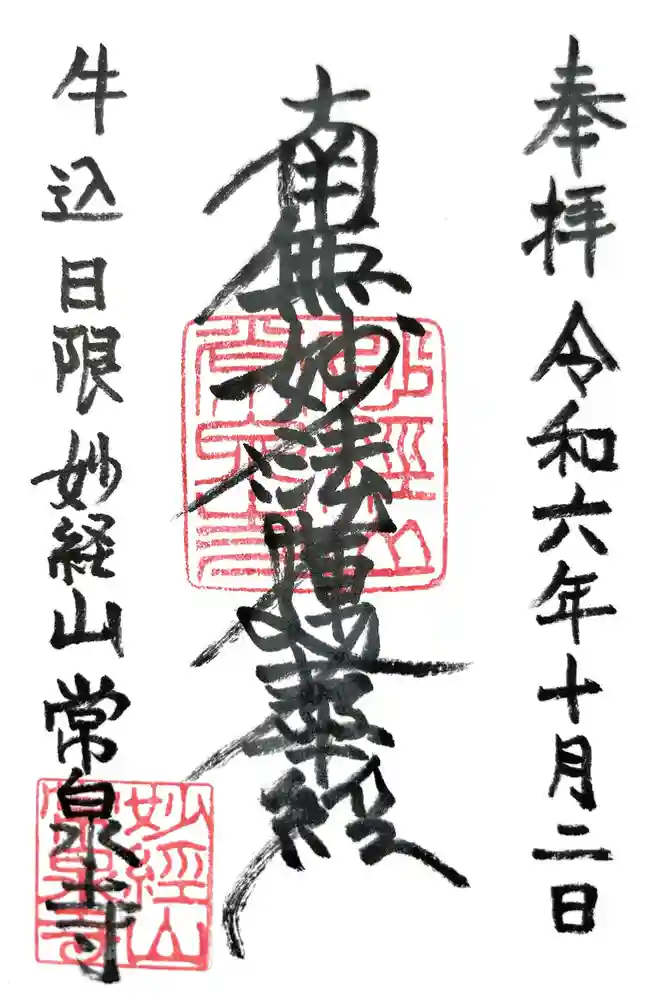 奉拝 令和六年十月二日
南無妙法蓮華経
牛込 日限 妙経山 常泉寺
妙經山
常泉寺
妙經山
常泉寺